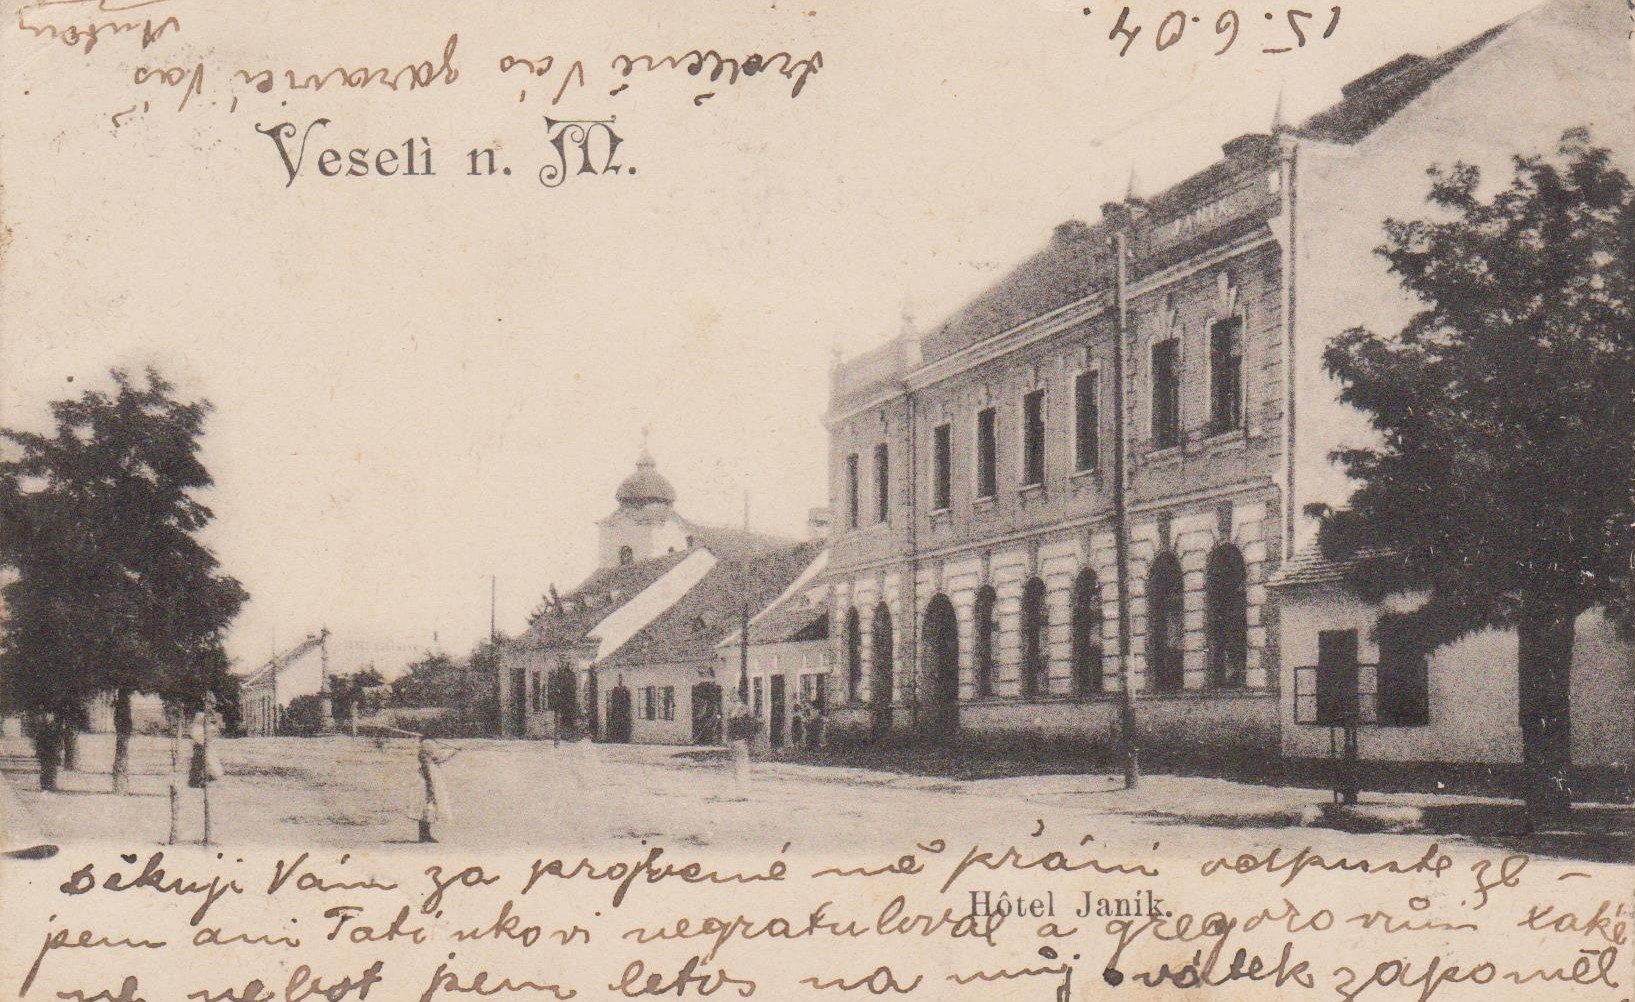 15.6.04.
srdečně Vás pozdravující Váš
Antoní
Veselì n. M.
JANÍK
děkuji Vám za projevené mě přání odpuste že -
Hôtel Janík.
jsem ani Tatínkovi negratuloval a gregorovům také
ne nebot jsem letos na můj svátek zapoměl